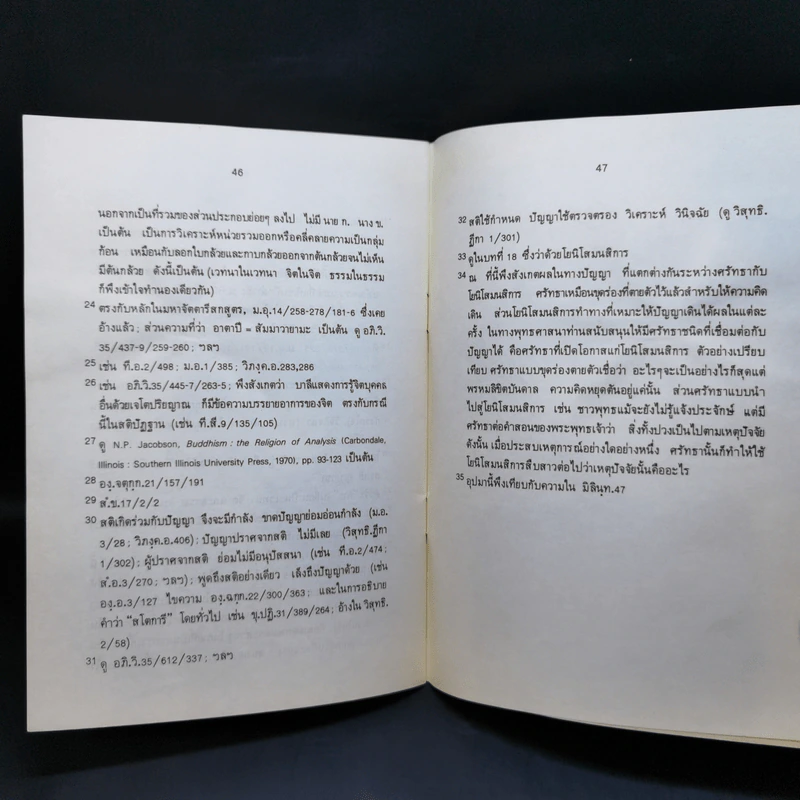 46
นอกจากเป็นที่รวมของส่วนประกอบย่อยๆ ลงไป ไม่มี นาย ก. นาง ข.
เป็นต้น เป็นการวิเคราะห์หน่วยรวมออกหรือคลี่คลายความเป็นกลุ่ม
ก้อน เหมือนกับลอกใบกล้วยและกาบกล้วยออกจากต้นกล้วยจนไม่เห็น
มีต้นกล้วย ดังนี้เป็นต้น (เวทนาในเวทนา จิตในจิต ธรรมในธรรม
ก็พึงเข้าใจทำนองเดียวกัน)
24 ตรงกับหลักในมหาจัตตารีสกสูตร, ม.อุ.14/258-278/181-6 ซึ่งเคย
อ้างแล้ว; ส่วนความที่ว่า อาตาปี = สัมมาวายามะ เป็นต้น ดู อภิ.วิ.
35/437-9/259-260; ฯลฯ
25 เช่น ที.อ.2/498; ม.อ.1/385; วิภงฺค.อ.283,286
26 เช่น อภิ.วิ.35/445-7/263-5; พึงสังเกตว่า บาลีแสดงการรู้จิตบุคคล
อื่นด้วยเจโตปริยญาณ ก็มีข้อความบรรยายอาการของจิต ตรงกับกรณี
นี้ในสติปัฏฐาน (เช่น ที.สี.9/135/105)
27 ดู N.P. Jacobson, Buddhism : the Religion of Analysis (Carbondale,
Illinois : Southern Illinois University Press, 1970), pp. 93-123 เป็นต้น
28 องฺ.จตุกฺก.21/157/191
29 สํ.ข.17/2/2
30 สติเกิดร่วมกับปัญญา จึงจะมีกำลัง ขาดปัญญาย่อมอ่อนกำลัง (ม.อ.
3/28; วิภงฺค.อ.406); ปัญญาปราศจากสติ ไม่มีเลย (วิสุทฺธิ.ฎีกา
1/302); ผู้ปราศจากสติ ย่อมไม่มีอนุปัสสนา (เช่น ที.อ.2/474;
สํ.อ.3/270; ฯลฯ); พูดถึงสติอย่างเดียว เล็งถึงปัญญาด้วย (เช่น
องฺ.อ.3/127 ไขความ องฺ.ฉกฺก.22/300/363; และในการอธิบาย
คำว่า "สโตการี" โดยทั่วไป เช่น ขุ.ปฏิ.31/389/264; อ้างใน วิสุทฺธิ.
2/58)
31 ดู อภิ.วิ.35/612/337; ฯลฯ
47
32 สติใช้กำหนด ปัญญาใช้ตรวจตรอง วิเคราะห์ วินิจฉัย (ดู วิสุทฺธิ.
ฎีกา 1/301)
33 ดูในบทที่ 18 ซึ่งว่าด้วยโยนิโสมนสิการ
34 ณ ที่นี้พึงสังเกตผลในทางปัญญา ที่แตกต่างกันระหว่างศรัทธากับ
โยนิโสมนสิการ ศรัทธาเหมือนขุดร่องที่ตายตัวไว้แล้วสำหรับให้ความคิด
เดิน ส่วนโยนิโสมนสิการทำทางที่เหมาะให้ปัญญาเดินได้ผลในแต่ละ
ครั้ง ในทางพุทธศาสนาท่านสนับสนุนให้มีศรัทธาชนิดที่เชื่อมต่อกับ
ปัญญาได้ คือศรัทธาที่เปิดโอกาสแก่โยนิโสมนสิการ ตัวอย่างเปรียบ
เทียบ ศรัทธาแบบขุดร่องตายตัวเชื่อว่า อะไรๆจะเป็นอย่างไรก็สุดแต่
พรหมลิขิตบันดาล ความคิดหยุดตันอยู่แค่นั้น ส่วนศรัทธาแบบนำ
ไปสู่โยนิโสมนสิการ เช่น ชาวพุทธแม้จะยังไม่รู้แจ้งประจักษ์ แต่มี
ศรัทธาต่อคำสอนของพระพุทธเจ้าว่า สิ่งทั้งปวงเป็นไปตามเหตุปัจจัย
ดังนั้น เมื่อประสบเหตุการณ์อย่างใดอย่างหนึ่ง ศรัทธานั้นก็ทำให้ใช้
โยนิโสมนสิการสืบสาวต่อไปว่าเหตุปัจจัยนั้นคืออะไร
35 อุปมานี้พึงเทียบกับความใน มิลินฺท.47